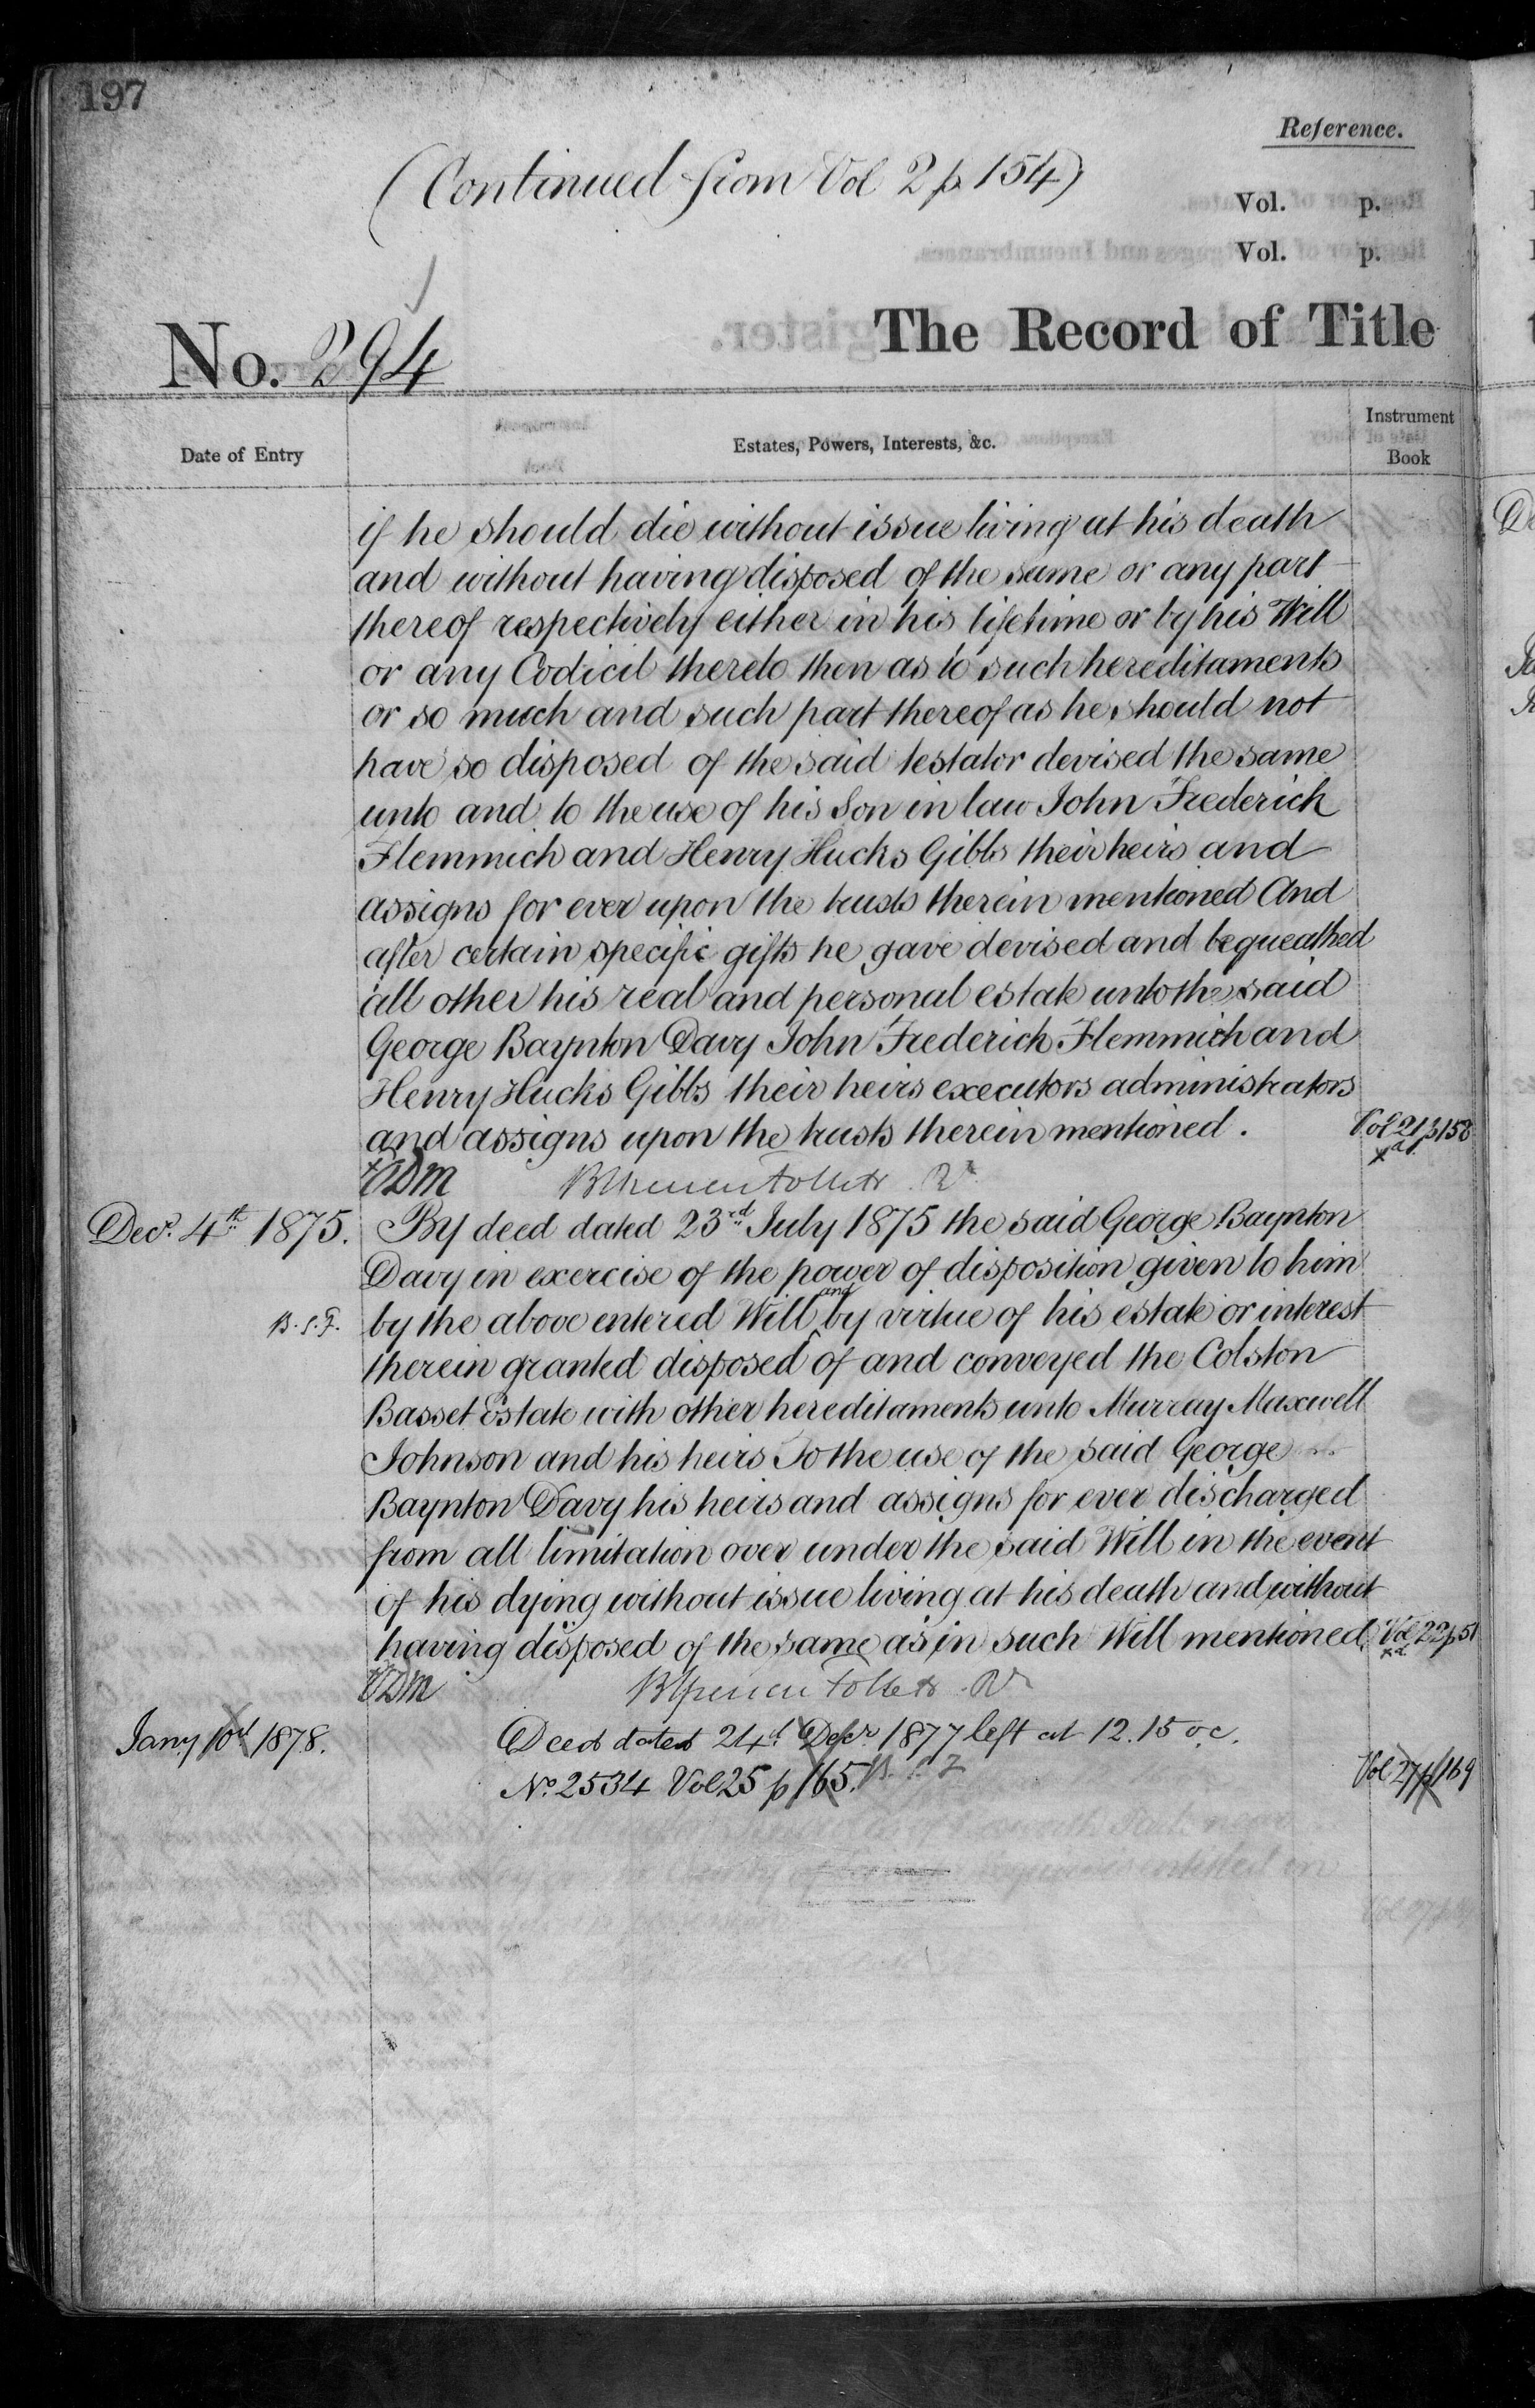 197
Reference.
(Continued from Vol 2 p. 154)
Vol. p.
Vol. p.
No. 294
The Record of Title
Date of Entry
Estates, Powers, Interests, &c.
Instrument Book
if he should die without issue living at his death
and without having disposed of the same or any part
thereof respectively either in his lifetime or by his Will
or any Codicil thereto then as to such hereditaments
or so much and such part thereof as he should not
have so disposed of the said testator devised the same
unto and to the use of his Son in law John Frederick
Flemmich and Henry Hucks Gibbs their heirs and
assigns for ever upon the trusts therein mentioned And
after certain specific gifts he gave devised and bequeathed
all other his real and personal estate unto the said
George Baynton Davy John Frederick Flemmich and
Henry Hucks Gibbs their heirs executors administrators
and assigns upon the trusts therein mentioned. Vol 21 p 158
Decr. 4th 1875. By deed dated 23rd July 1875 the said George Baynton
Davy in exercise of the power of disposition given to him
B.S.F. by the above entered Will and by virtue of his estate or interest
therein granted disposed of and conveyed the Colston
Basset Estate with other hereditaments unto Murray Maxwell
Johnson and his heirs To the use of the said George
Baynton Davy his heirs and assigns for ever discharged
from all limitation over under the said Will in the event
of his dying without issue living at his death and without
having disposed of the same as in such Will mentioned. Vol 22 p 51
Jany 10th 1878. Deed dated 24th Decr. 1877 left at 12.15 o.c.
No. 2534 Vol 25 p 165. Vol 27 p 169